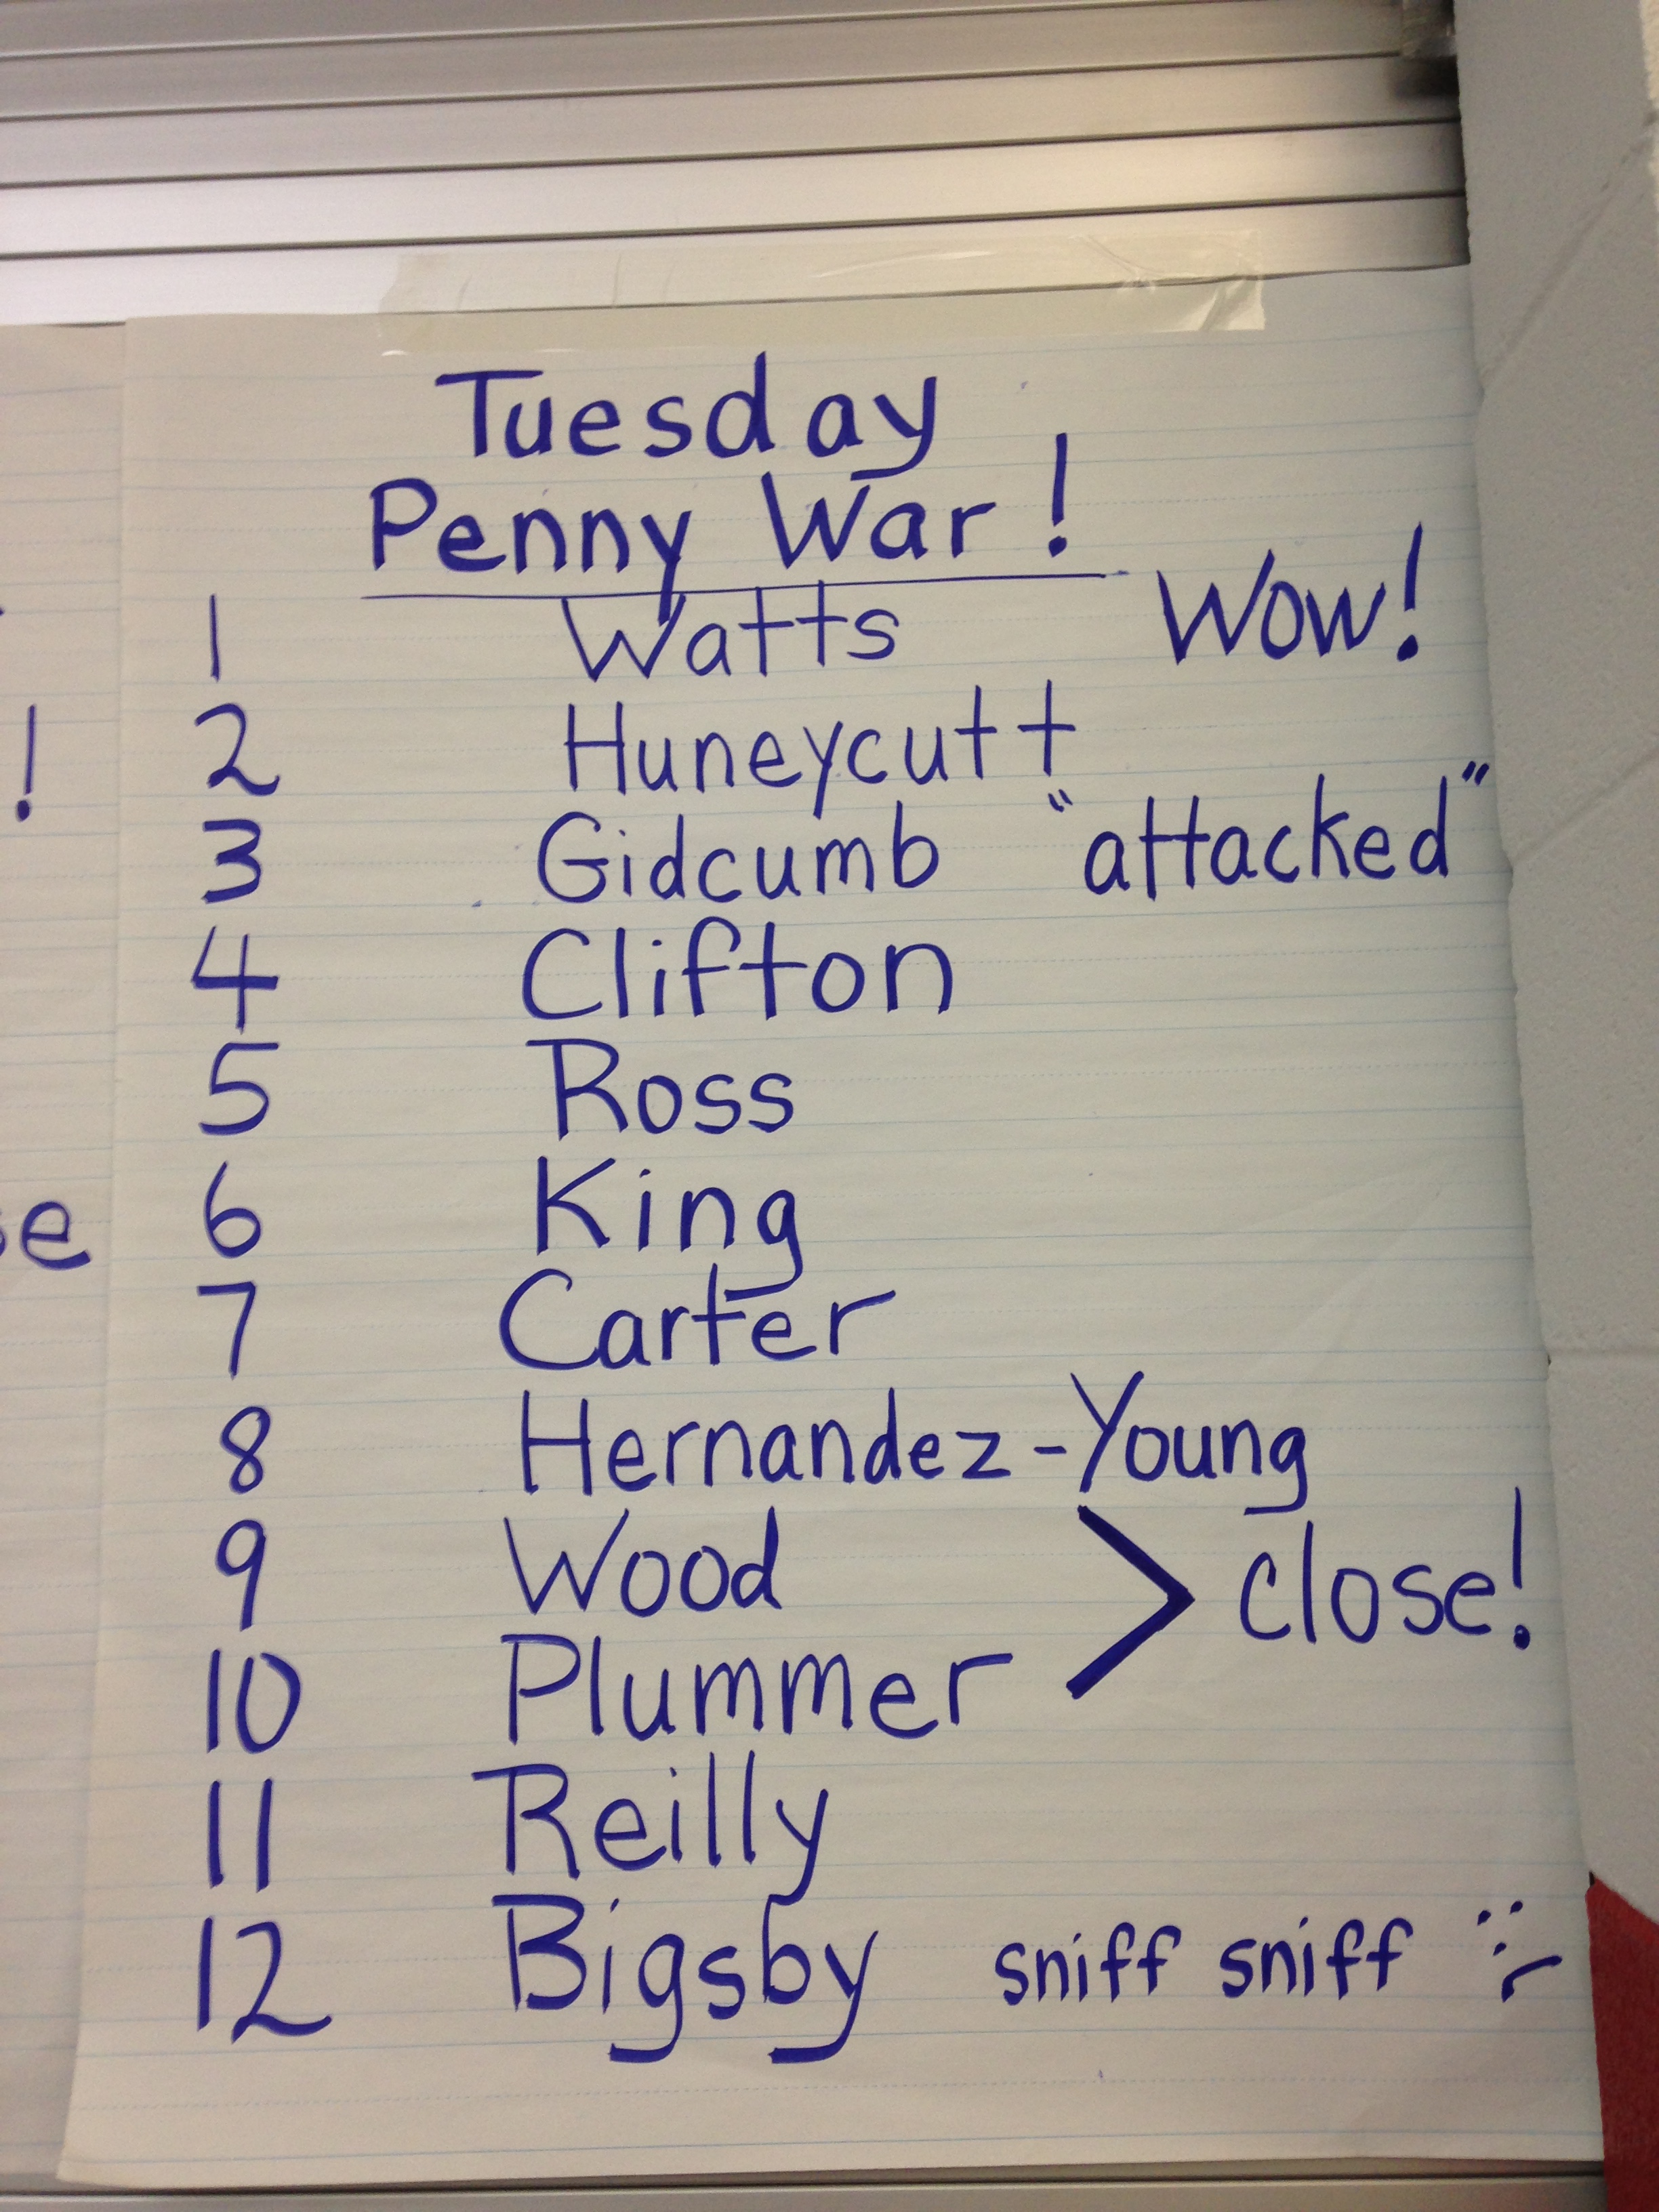 Tuesday
Penny War!
1 Watts Wow!
2 Huneycutt
3 Gidcumb "attacked"
4 Clifton
5 Ross
6 King
7 Carter
8 Hernandez-Young
9 Wood
> close!
10 Plummer
11 Reilly
12 Bigsby sniff sniff :(
!
e